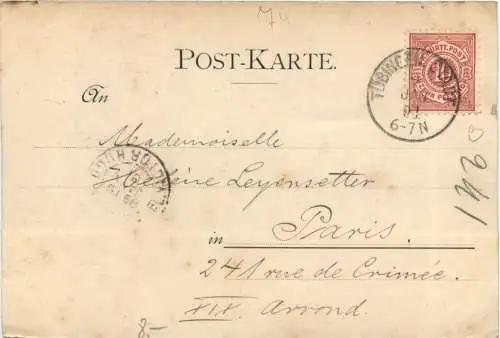 74
POST-KARTE.
WÜRTT. POST
10
ZEHN PF
TÜBINGEN
6-7N
An
Mademoiselle
Hélène Leyensetter
in Paris.
241 rue de Crimée.
XIX. Arrond.
142
8.-